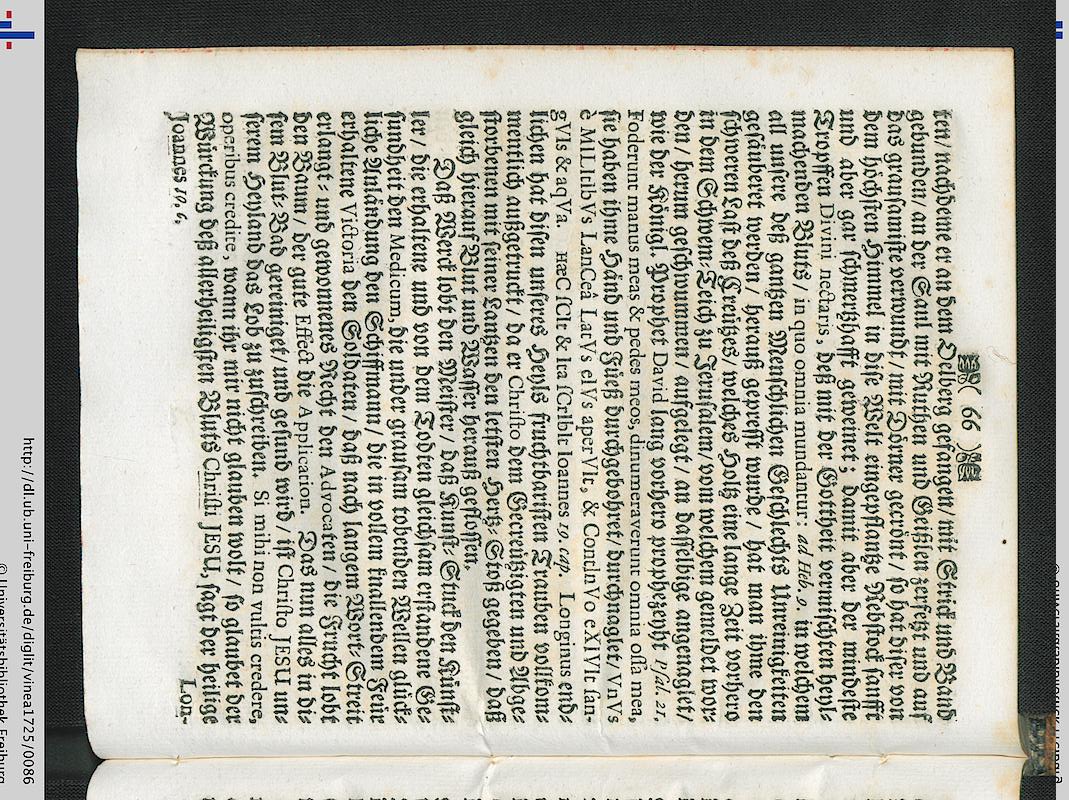 ( 66 )
ten/ nachdeme er an dem Oelberg gefangen/ mit Strick und Band
gebunden/ an der Saul mit Ruthen und Geißlen zerfetzt und auf
das grausamste verwundt/ mit Dörner gecrönt/ so hat diser von
dem höchsten Himmel in dise Welt eingepflantzte Rebstock sanfft
und aber gar schmertzhafft geweinet; damit aber der mindeste
Tropffen Divini nectaris, deß mit der Gottheit vermischten heyl-
machenden Bluts/ in quo omnia mundantur: ad Heb. 9. in welchem
all unsere deß gantzen Menschlichen Geschlechts Unreinigkeiten
gesäubert werden/ herauß gepreßt wurde/ hat man ihme den
schweren Last deß Creützes welches Holtz eine lange Zeit vorhero
in dem Schwem-Teich zu Jerusalem/ von welchem gemeldet wor-
den/ herum geschwummen/ aufgelegt/ an dasselbige angenaglet/
wie der Königl. Prophet David lang vorhero prophezeyht Psal. 21.
Foderunt manus meas & pedes meos, dinumeraverunt omnia ossa mea,
sie haben ihme Händ und Füeß durchgebohret/ durchnaglet/ VnVs
è MILItIbVs LanCeâ LatVs eIVs aperVIt, & ContInVo eXIVIt san-
gVIs & aqVa. HæC sCIt & Ita sCrIbIt Ioannes 19. cap. Longinus end-
lichen hat disen unseres Heyls fruchtbaristen Trauben vollkom-
mentlich außgetruckt/ da er Christo dem Gecreitzigten und Abge-
storbenen mit seiner Lantzen den letsten Hertz-Stoß gegeben/ daß
gleich hierauf Blut und Wasser herauß geflossen.
Daß Werck lobt den Meister/ daß Kunst-Stuck den Künst-
ler/ die erhaltene und von dem Todten gleichsam erstandene Ge-
sundheit den Medicum, die under grausam tobenden Wellen glück-
liche Anländung den Schiffmann/ die in vollem knallendem Feür
erhaltene Victoria den Soldaten/ daß nach langem Wort-Streit
erlangt- und gewonnenes Recht den Advocaten/ die Frucht lobt
den Baum/ der gute Effect die Application. Das nun alles in di-
sem Blut-Bad gereiniget/ und gesund wird/ ist Christo JESU un-
serem Heyland das Lob zu zuschreiben. Si mihi non vultis credere,
operibus credite, wann ihr mir nicht glauben wolt/ so glaubet der
Würckung deß allerheiligsten Bluts Christi JESU, sagt der heilige
Joannes 10. 6.
Lon-
http://dl.ub.uni-freiburg.de/diglit/vinea1725/0086
© Universitätsbibliothek Freiburg